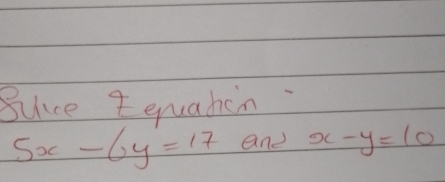 Solve Equation -
5x - 6y = 17 and x - y = 10